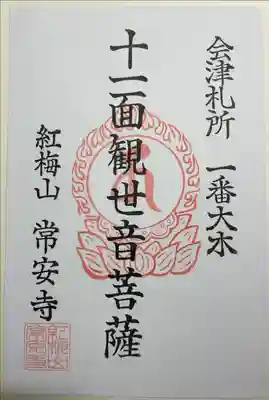 会津札所 一番大木
十一面観世音菩薩
紅梅山 常安寺